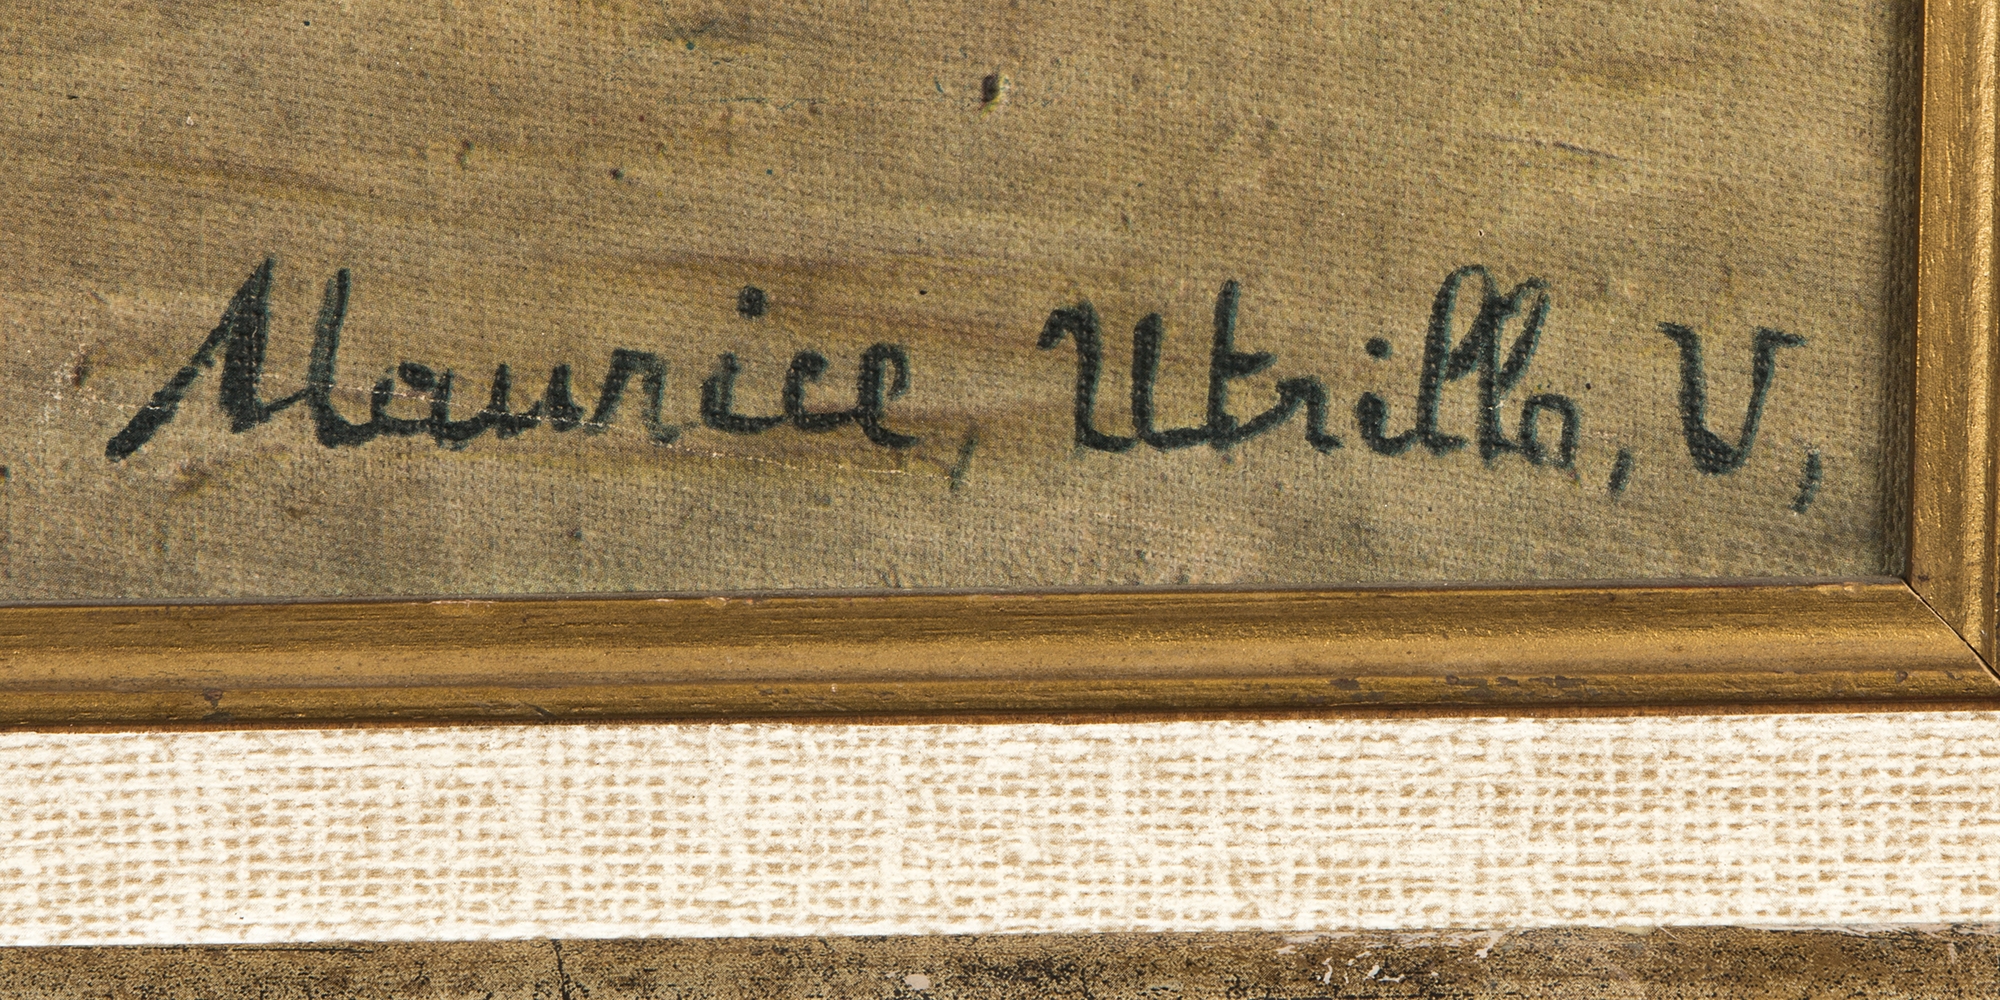 Maurice, Utrillo, V,